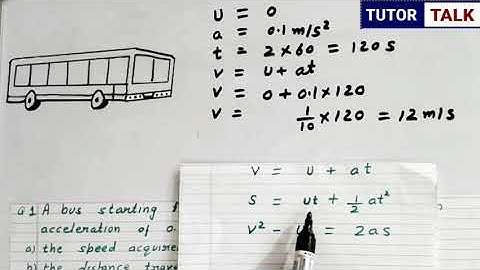 TUTOR TALK
u = 0
a = 0.1 m/s²
t = 2 × 60 = 120 s
v = u + at
v = 0 + 0.1 × 120
v = 1/10 × 120 = 12 m/s
v = u + at
s = ut + 1/2 at²
v² - = 2as
Q1 A bus starting
acceleration of 0.
a) the speed acquire
b) the distance trav